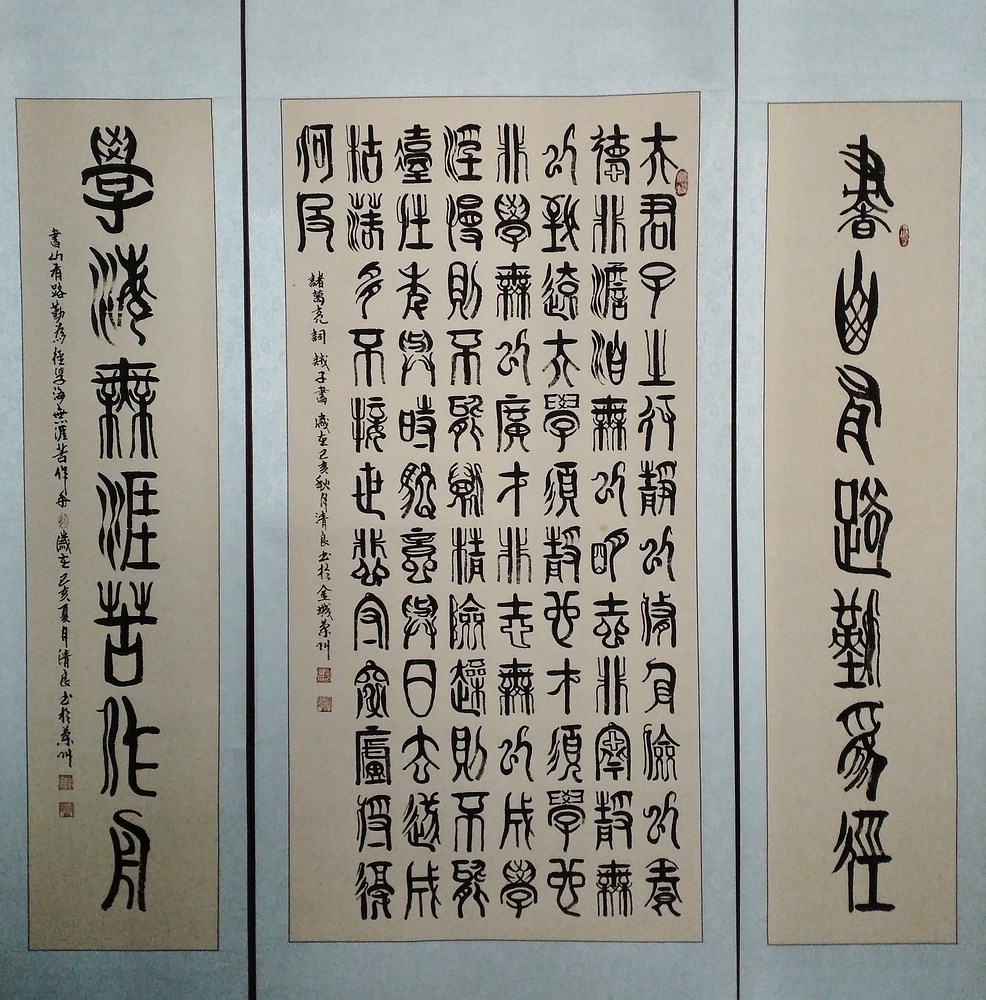 書山有路勤為徑
夫君子之行靜以修身儉以養
德非澹泊無以明志非寧靜無
以致遠夫學須靜也才須學也
非學無以廣才非志無以成學
淫慢則不能勵精險躁則不能
性年與時馳意與日去遂成
枯落多不接世悲守窮廬將復
何及
諸葛亮詞 誡子書 歲在己亥秋月清良書於金城蘭州
學海無涯苦作舟
書山有路勤為徑學海無涯苦作舟 歲在己亥夏月清良書於蘭州